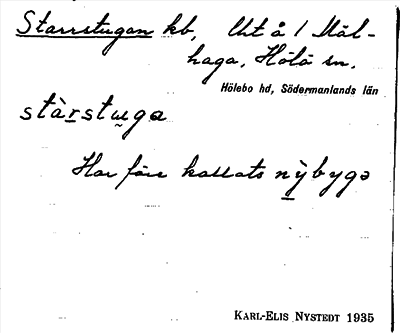 Starrstugan kb, Utå / Mål-
haga, Hölö sn.
Hölebo hd, Södermanlands län
stàrstuga
Har förr kallats nỳbygə
KARL-ELIS NYSTEDT 1935